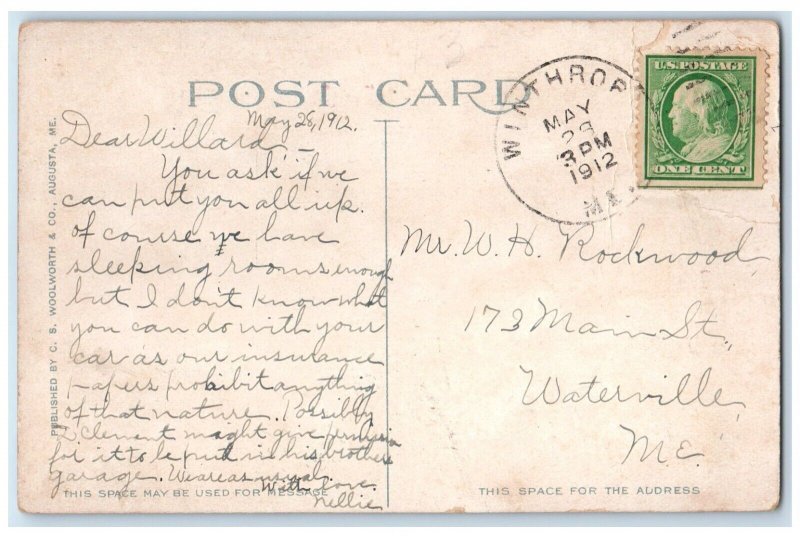 POST CARD
May 28, 1912.
Dear Willard —
You ask if we
can put you all up.
Of course we have
sleeping rooms enough
but I don't know what
you can do with your
car as our insurance
papers prohibit anything
of that nature. Possibly
Clement might give permission
for it to be put in his brothers
garage. We are as usual.
With love
Nellie
THIS SPACE MAY BE USED FOR MESSAGE
PUBLISHED BY C. S. WOOLWORTH & CO., AUGUSTA, ME.
WINTHROP
MAY
28
3 PM
1912
ME.
U.S. POSTAGE
ONE CENT
Mr. W. H. Rockwood,
173 Main St.,
Waterville,
ME.
THIS SPACE FOR THE ADDRESS